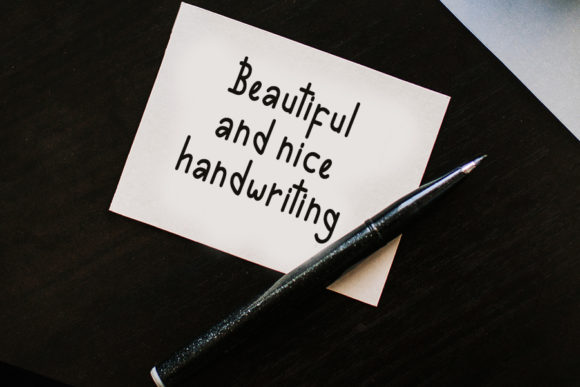 Beautiful
and nice
handwriting